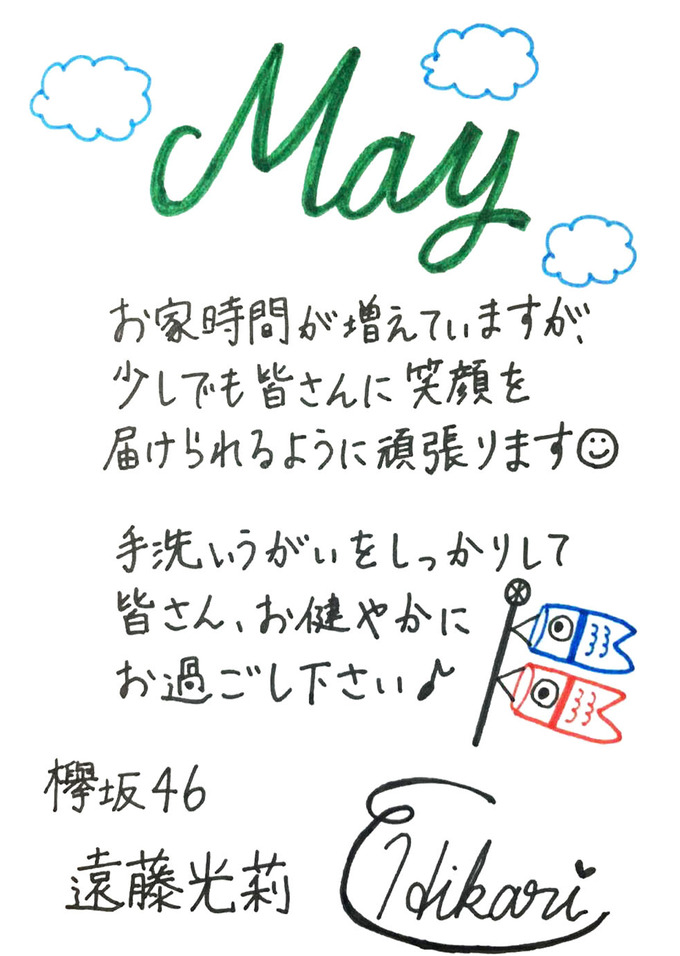 May
お家時間が増えていますが、
少しでも皆さんに笑顔を
届けられるように頑張ります☺
手洗いうがいをしっかりして
皆さん、お健やかに
お過ごし下さい♪
欅坂46
遠藤光莉
Hikari